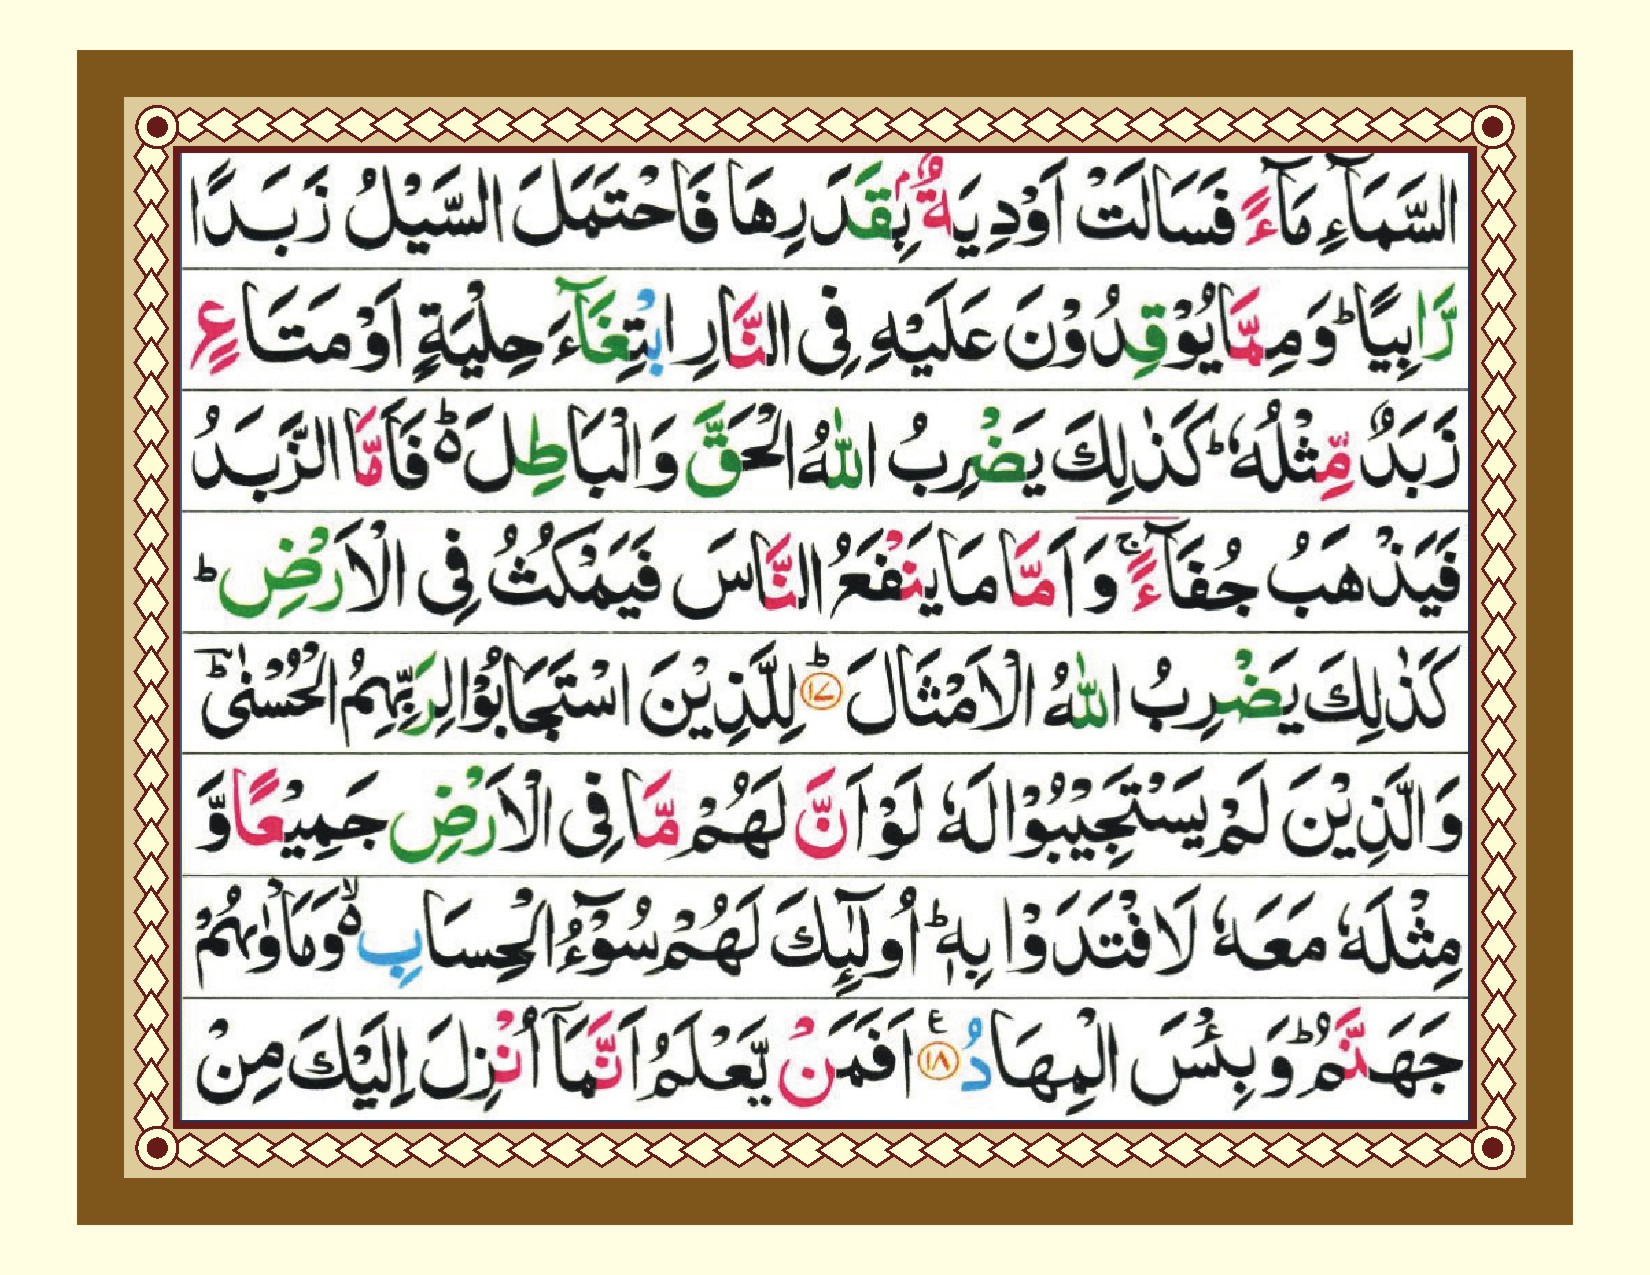 السَّمَآءِ مَآءً فَسَالَتْ اَوْدِيَةٌۢ بِقَدَرِهَا فَاحْتَمَلَ السَّيْلُ زَبَدًا
رَّابِيًا ؕ وَمِمَّا يُوْقِدُوْنَ عَلَيْهِ فِى النَّارِ ابْتِغَآءَ حِلْيَةٍ اَوْ مَتَاعٍ
زَبَدٌ مِّثْلُهٗ ؕ كَذٰلِكَ يَضْرِبُ اللّٰهُ الْحَقَّ وَالْبَاطِلَ ؕ۬ فَاَمَّا الزَّبَدُ
فَيَذْهَبُ جُفَآءً ۚ وَاَمَّا مَا يَنْفَعُ النَّاسَ فَيَمْكُثُ فِى الْاَرْضِ ؕ
كَذٰلِكَ يَضْرِبُ اللّٰهُ الْاَمْثَالَ ؕ‏ ﴿۱۷﴾ لِلَّذِيْنَ اسْتَجَابُوْا لِرَبِّهِمُ الْحُسْنٰى ؕ
وَالَّذِيْنَ لَمْ يَسْتَجِيْبُوْا لَهٗ لَوْ اَنَّ لَهُمْ مَّا فِى الْاَرْضِ جَمِيْعًا وَّ
مِثْلَهٗ مَعَهٗ لَافْتَدَوْا بِهٖ ؕ اُولٰٓئِكَ لَهُمْ سُوْٓءُ الْحِسَابِ ۙ۬ وَمَاْوٰىهُمْ
جَهَنَّمُ ؕ وَبِئْسَ الْمِهَادُ ﴿۱۸﴾ ع اَفَمَنْ يَّعْلَمُ اَنَّمَآ اُنْزِلَ اِلَيْكَ مِنْ